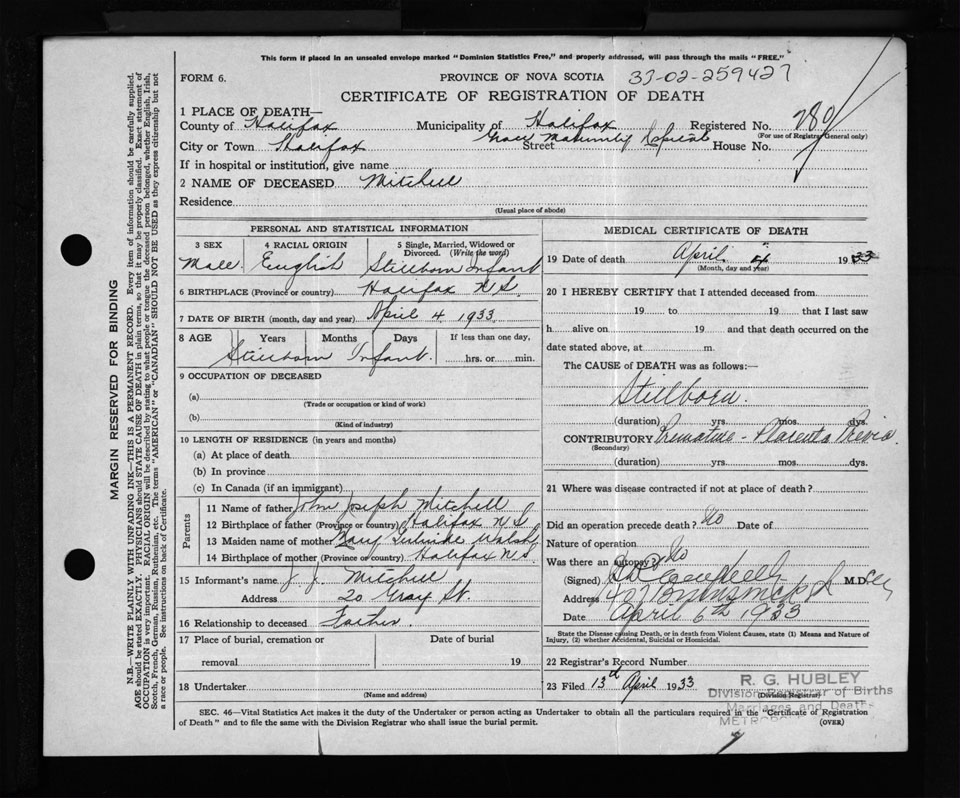 This form if placed in an unsealed envelope marked "Dominion Statistics Free," and properly addressed, will pass through the mails "FREE."
FORM 6.
PROVINCE OF NOVA SCOTIA 33-02-259427
CERTIFICATE OF REGISTRATION OF DEATH
1 PLACE OF DEATH—
County of Halifax Municipality of Halifax Registered No.
(For use of Registrar General only)
City or Town Halifax Street Grace Maternity Hospital House No.
If in hospital or institution, give name
2 NAME OF DECEASED Mitchell
Residence
(Usual place of abode)
PERSONAL AND STATISTICAL INFORMATION
3 SEX 4 RACIAL ORIGIN 5 Single, Married, Widowed or Divorced. (Write the word)
Male English Stillborn Infant
6 BIRTHPLACE (Province or country) Halifax N S.
7 DATE OF BIRTH (month, day and year) April 4 1933
8 AGE Years Months Days If less than one day,
Stillborn Infant. hrs. or min.
9 OCCUPATION OF DECEASED
(a)
(Trade or occupation or kind of work)
(b)
(Kind of industry)
10 LENGTH OF RESIDENCE (in years and months)
(a) At place of death
(b) In province
(c) In Canada (if an immigrant)
Parents
11 Name of father John Joseph Mitchell
12 Birthplace of father (Province or country) Halifax N S
13 Maiden name of mother Mary Walsh
14 Birthplace of mother (Province or country) Halifax N S.
15 Informant's name J J. Mitchell
Address 20 Gray St.
16 Relationship to deceased Father.
17 Place of burial, cremation or removal
Date of burial
19
18 Undertaker
(Name and address)
MEDICAL CERTIFICATE OF DEATH
19 Date of death April 4 1933
(Month, day and year)
20 I HEREBY CERTIFY that I attended deceased from
19 to 19 that I last saw
h alive on 19 and that death occurred on the
date stated above, at m.
The CAUSE of DEATH was as follows:—
Stillborn.
(duration) yrs. mos. dys.
CONTRIBUTORY Premature - Placenta Previa.
(Secondary)
(duration) yrs. mos. dys.
21 Where was disease contracted if not at place of death?
Did an operation precede death? No Date of
Nature of operation
Was there an autopsy? No
(Signed) M.D.
Address
Date April 6th 1933
State the Disease causing Death, or in death from Violent Causes, state (1) Means and Nature of
Injury, (2) whether Accidental, Suicidal or Homicidal.
22 Registrar's Record Number
23 Filed 13th April 1933
(Division Registrar)
R. G. HUBLEY
Division Registrar of Births
Marriages and Deaths
SEC. 46—Vital Statistics Act makes it the duty of the Undertaker or person acting as Undertaker to obtain all the particulars required in the "Certificate of Registration
of Death" and to file the same with the Division Registrar who shall issue the burial permit.
(OVER)
MARGIN RESERVED FOR BINDING
N.B.—WRITE PLAINLY WITH UNFADING INK—THIS IS A PERMANENT RECORD. Every item of information should be carefully supplied.
AGE should be stated EXACTLY. PHYSICIANS should STATE CAUSE OF DEATH in plain terms, so that it may be properly classified. Exact statement of
OCCUPATION is very important. RACIAL ORIGIN will be described by stating to what people or tongue the deceased person belonged, whether English, Irish,
Scotch, French, German, Russian, Ruthenian, etc. The terms "AMERICAN" or "CANADIAN" SHOULD NOT BE USED as they express citizenship but not
a race or people. See instructions on back of Certificate.